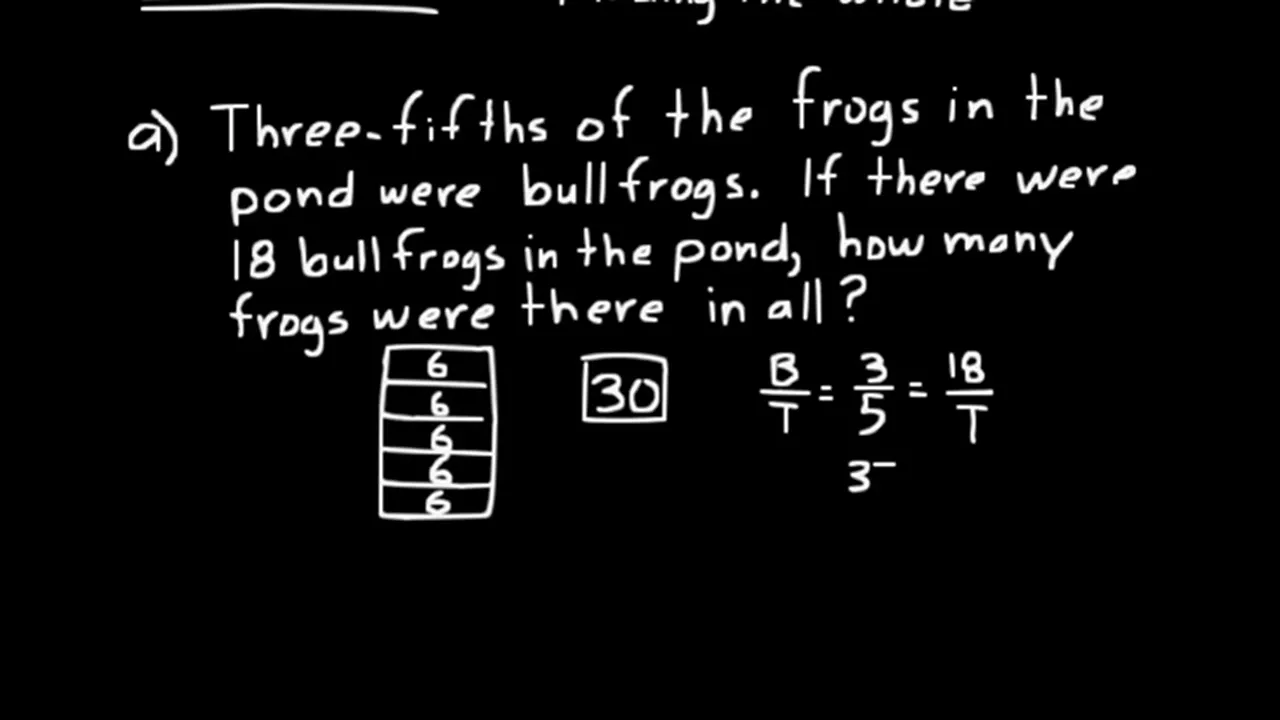 the whole
a) Three-fifths of the frogs in the
pond were bullfrogs. If there were
18 bullfrogs in the pond, how many
frogs were there in all?
6
6
6
6
6
30
B/T = 3/5 = 18/T
3T